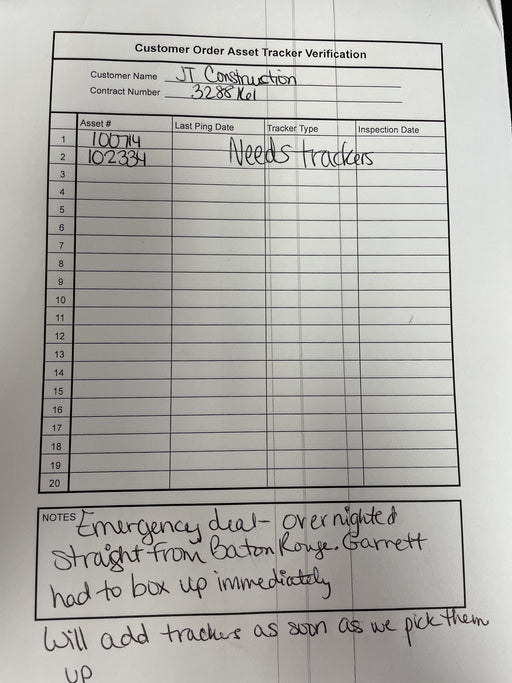 Customer Order Asset Tracker Verification
Customer Name JT Construction
Contract Number
Asset # Last Ping Date Tracker Type Inspection Date
1 100714
2 102334 Needs trackers
3
4
5
6
7
8
9
10
11
12
13
14
15
16
17
18
19
20
NOTES Emergency deal - overnighted
straight from Baton Rouge. Garrett
had to box up immediately
Will add trackers as soon as we pick them
up